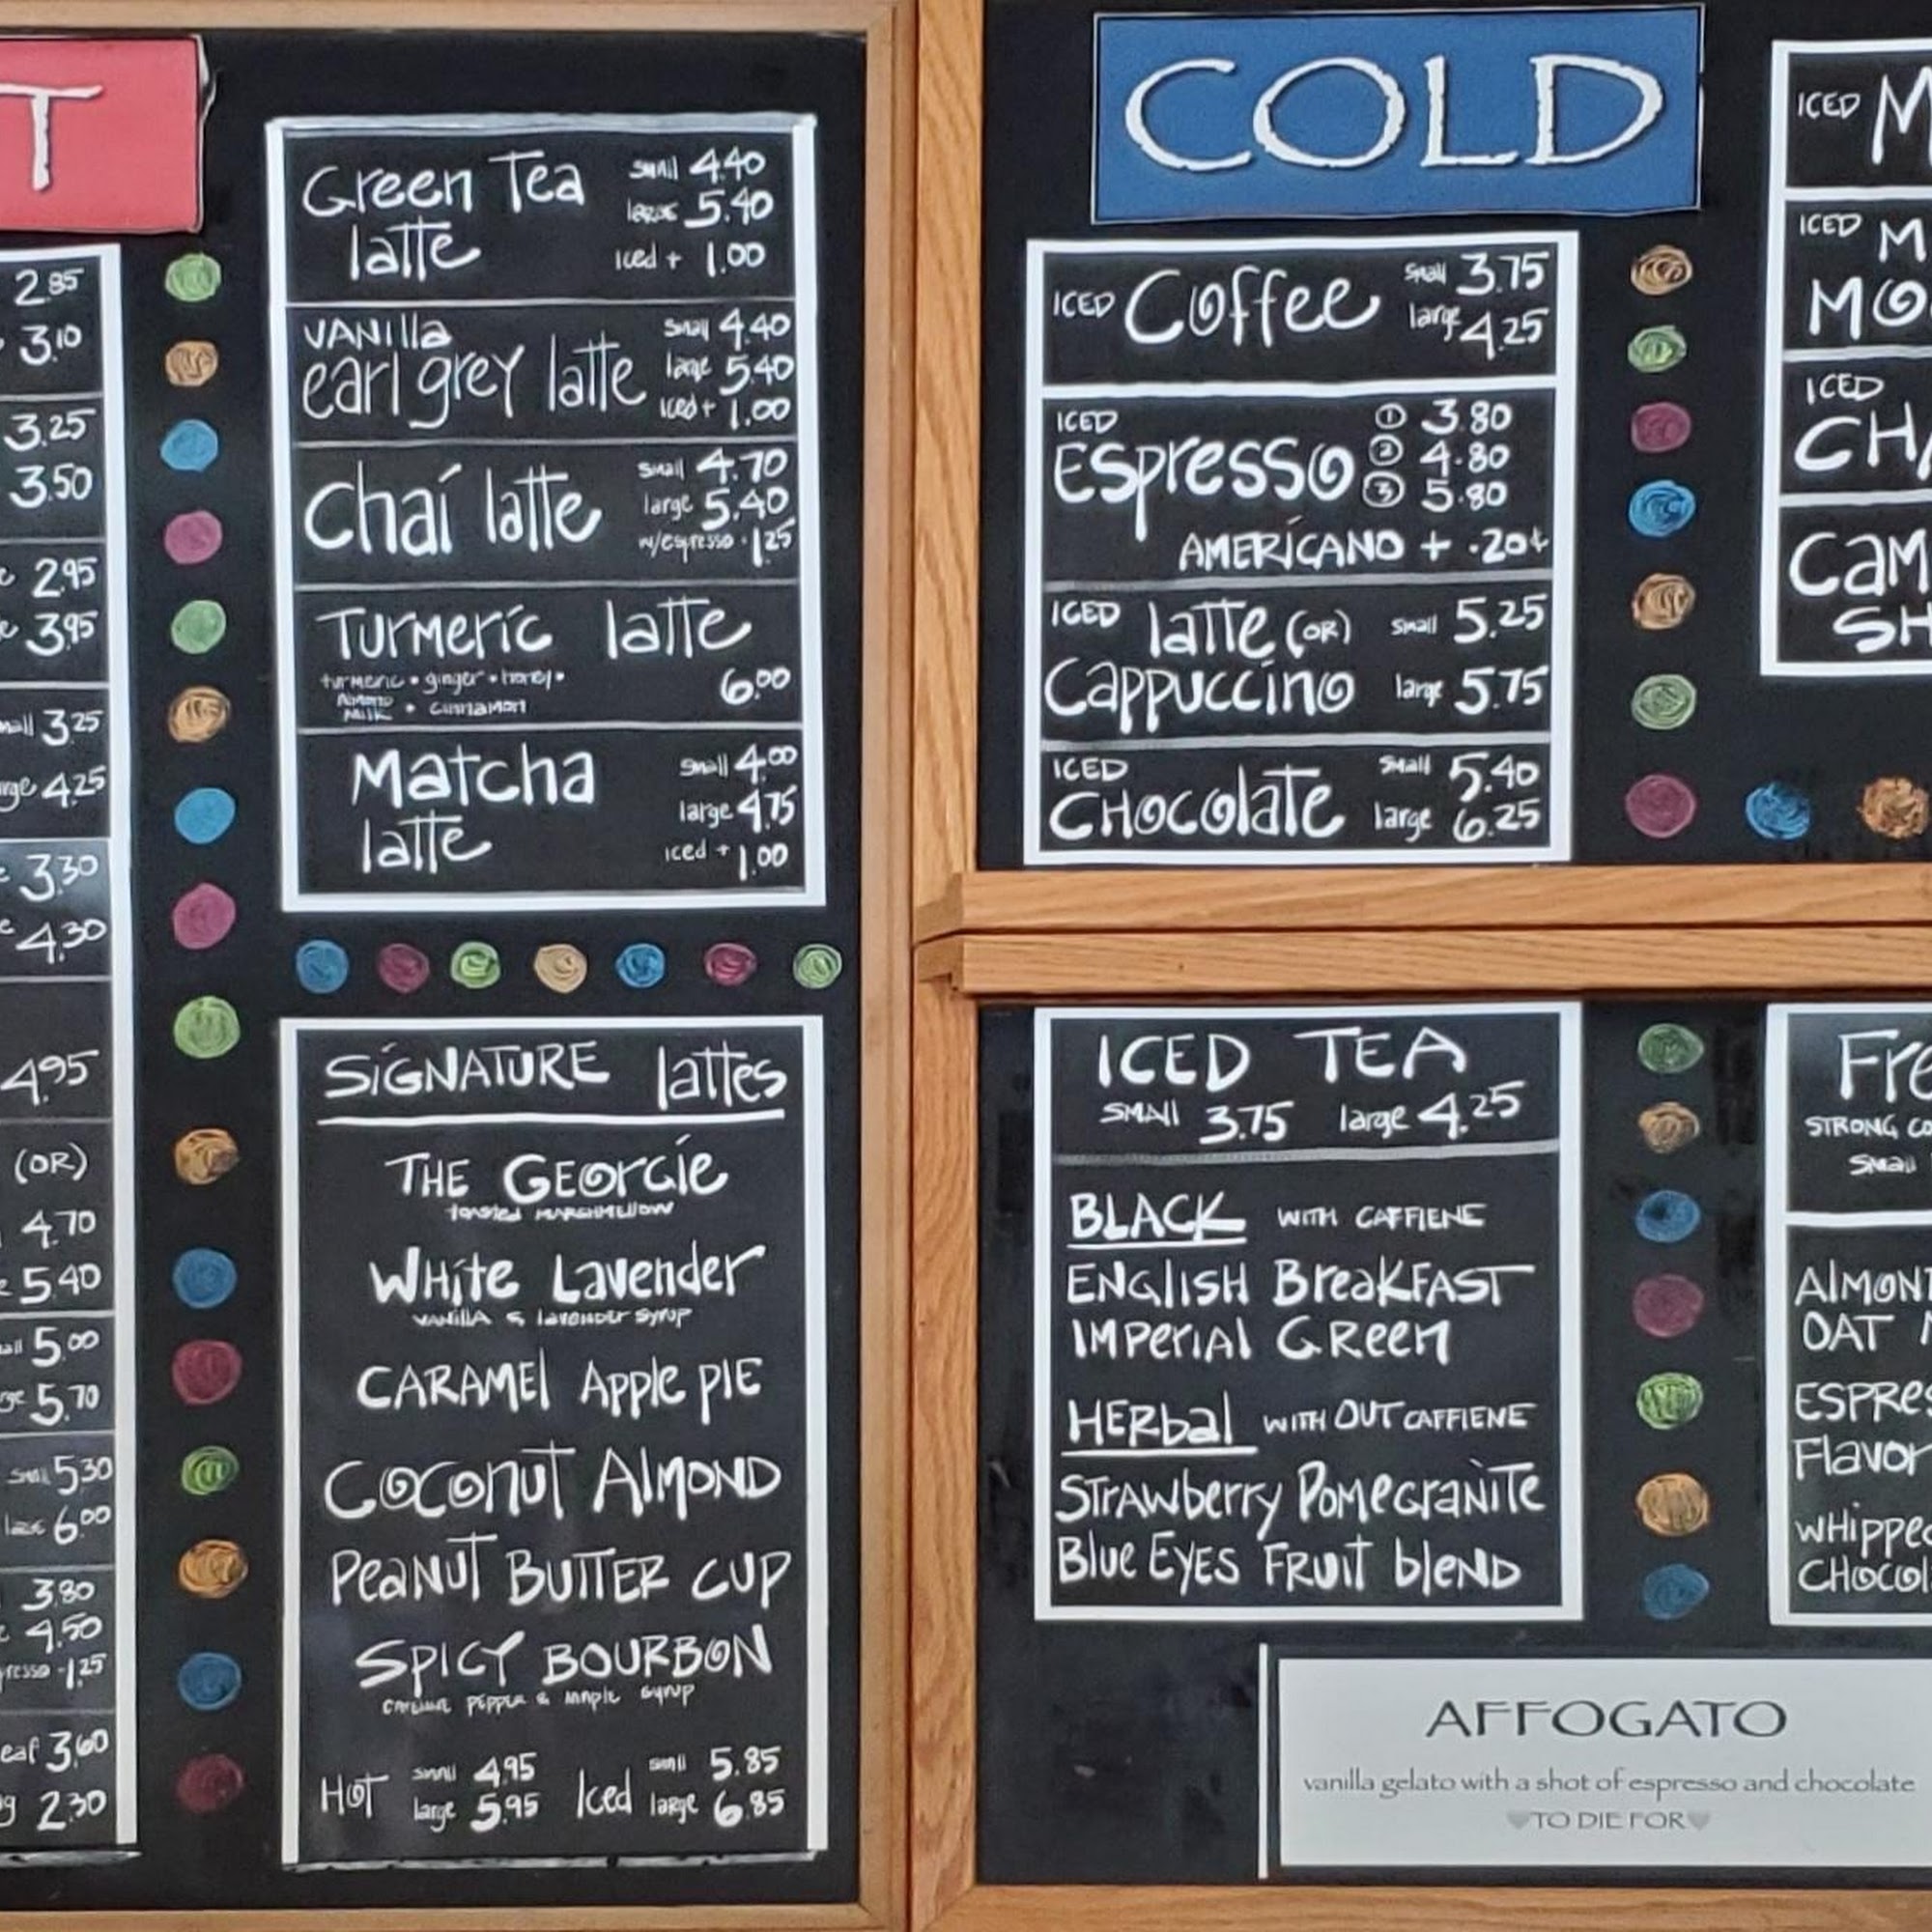 T
2.85
3.10
3.25
3.50
2.95
3.95
3.25
4.25
3.30
4.30
4.95
(OR)
4.70
5.40
5.00
5.70
small 5.30
6.00
3.80
4.50
1.25
3.60
2.30
Green Tea small 4.40
latte large 5.40
iced + 1.00
VANILLA small 4.40
earl grey latte large 5.40
iced + 1.00
Chai latte small 4.70
large 5.40
w/espresso · 1.25
Turmeric latte
turmeric • ginger • honey • 6.00
Almond Milk • cinnamon
Matcha small 4.00
latte large 4.75
iced + 1.00
SIGNATURE lattes
THE GEORGIE
toasted MARSHMELLOW
White Lavender
VANILLA & lavender syrup
CARAMEL Apple PIE
Coconut Almond
Peanut Butter Cup
SPICY BOURBON
pepper & maple syrup
Hot small 4.95 Iced small 5.85
large 5.95 large 6.85
COLD
ICED Coffee small 3.75
large 4.25
ICED ① 3.80
Espresso ② 4.80
③ 5.80
AMERICANO + .20¢
ICED latte (OR) small 5.25
Cappuccino large 5.75
ICED small 5.40
CHOCOlate large 6.25
ICED
ICED
ICED
ICED TEA
SMAll 3.75 large 4.25
BLACK WITH CAFFIENE
ENGLISH BreakFAST
IMPerIAl GReen
HERbal WITH OUT CAFFIENE
Strawberry Pomegranite
Blue EYES FRUIT blenD
STRONG
Small
AlMOND
OAT
AFFOGATO
vanilla gelato with a shot of espresso and chocolate
TO DIE FOR